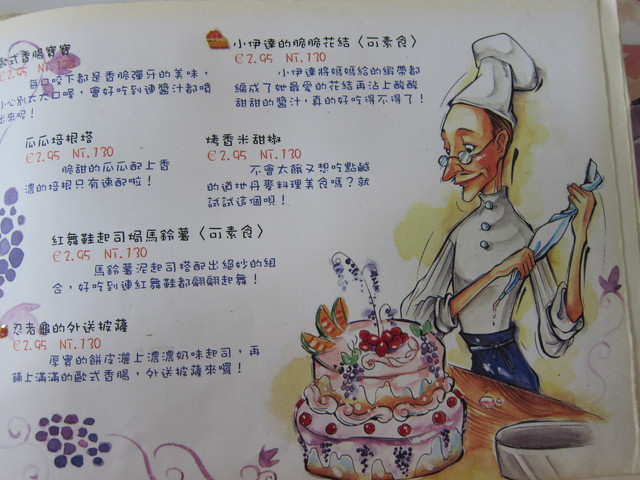 歐式香腸寶寶
€2.95 NT.130
每口咬下都是香脆彈牙的美味，
小心別太大口喔，會好吃到連醬汁都噴
出來呢！
小伊達的脆脆花結〈可素食〉
€2.95 NT.130
小伊達將媽媽給的緞帶都
編成了她最愛的花結再沾上酸酸
甜甜的醬汁，真的好吃得不得了！
瓜瓜培根塔
€2.95 NT.130
脆甜的瓜瓜配上香
濃的培根只有速配啦！
烤香米甜椒
€2.95 NT.130
不會太餓又想吃點鹹
的道地丹麥料理美食嗎？就
試試這個唄！
紅舞鞋起司焗馬鈴薯〈可素食〉
€2.95 NT.130
馬鈴薯泥起司搭配出絕妙的組
合，好吃到連紅舞鞋都翩翩起舞！
忍者龜的外送披薩
€2.95 NT.130
厚實的餅皮灑上濃濃奶味起司，再
鋪上滿滿的歐式香腸，外送披薩來囉！